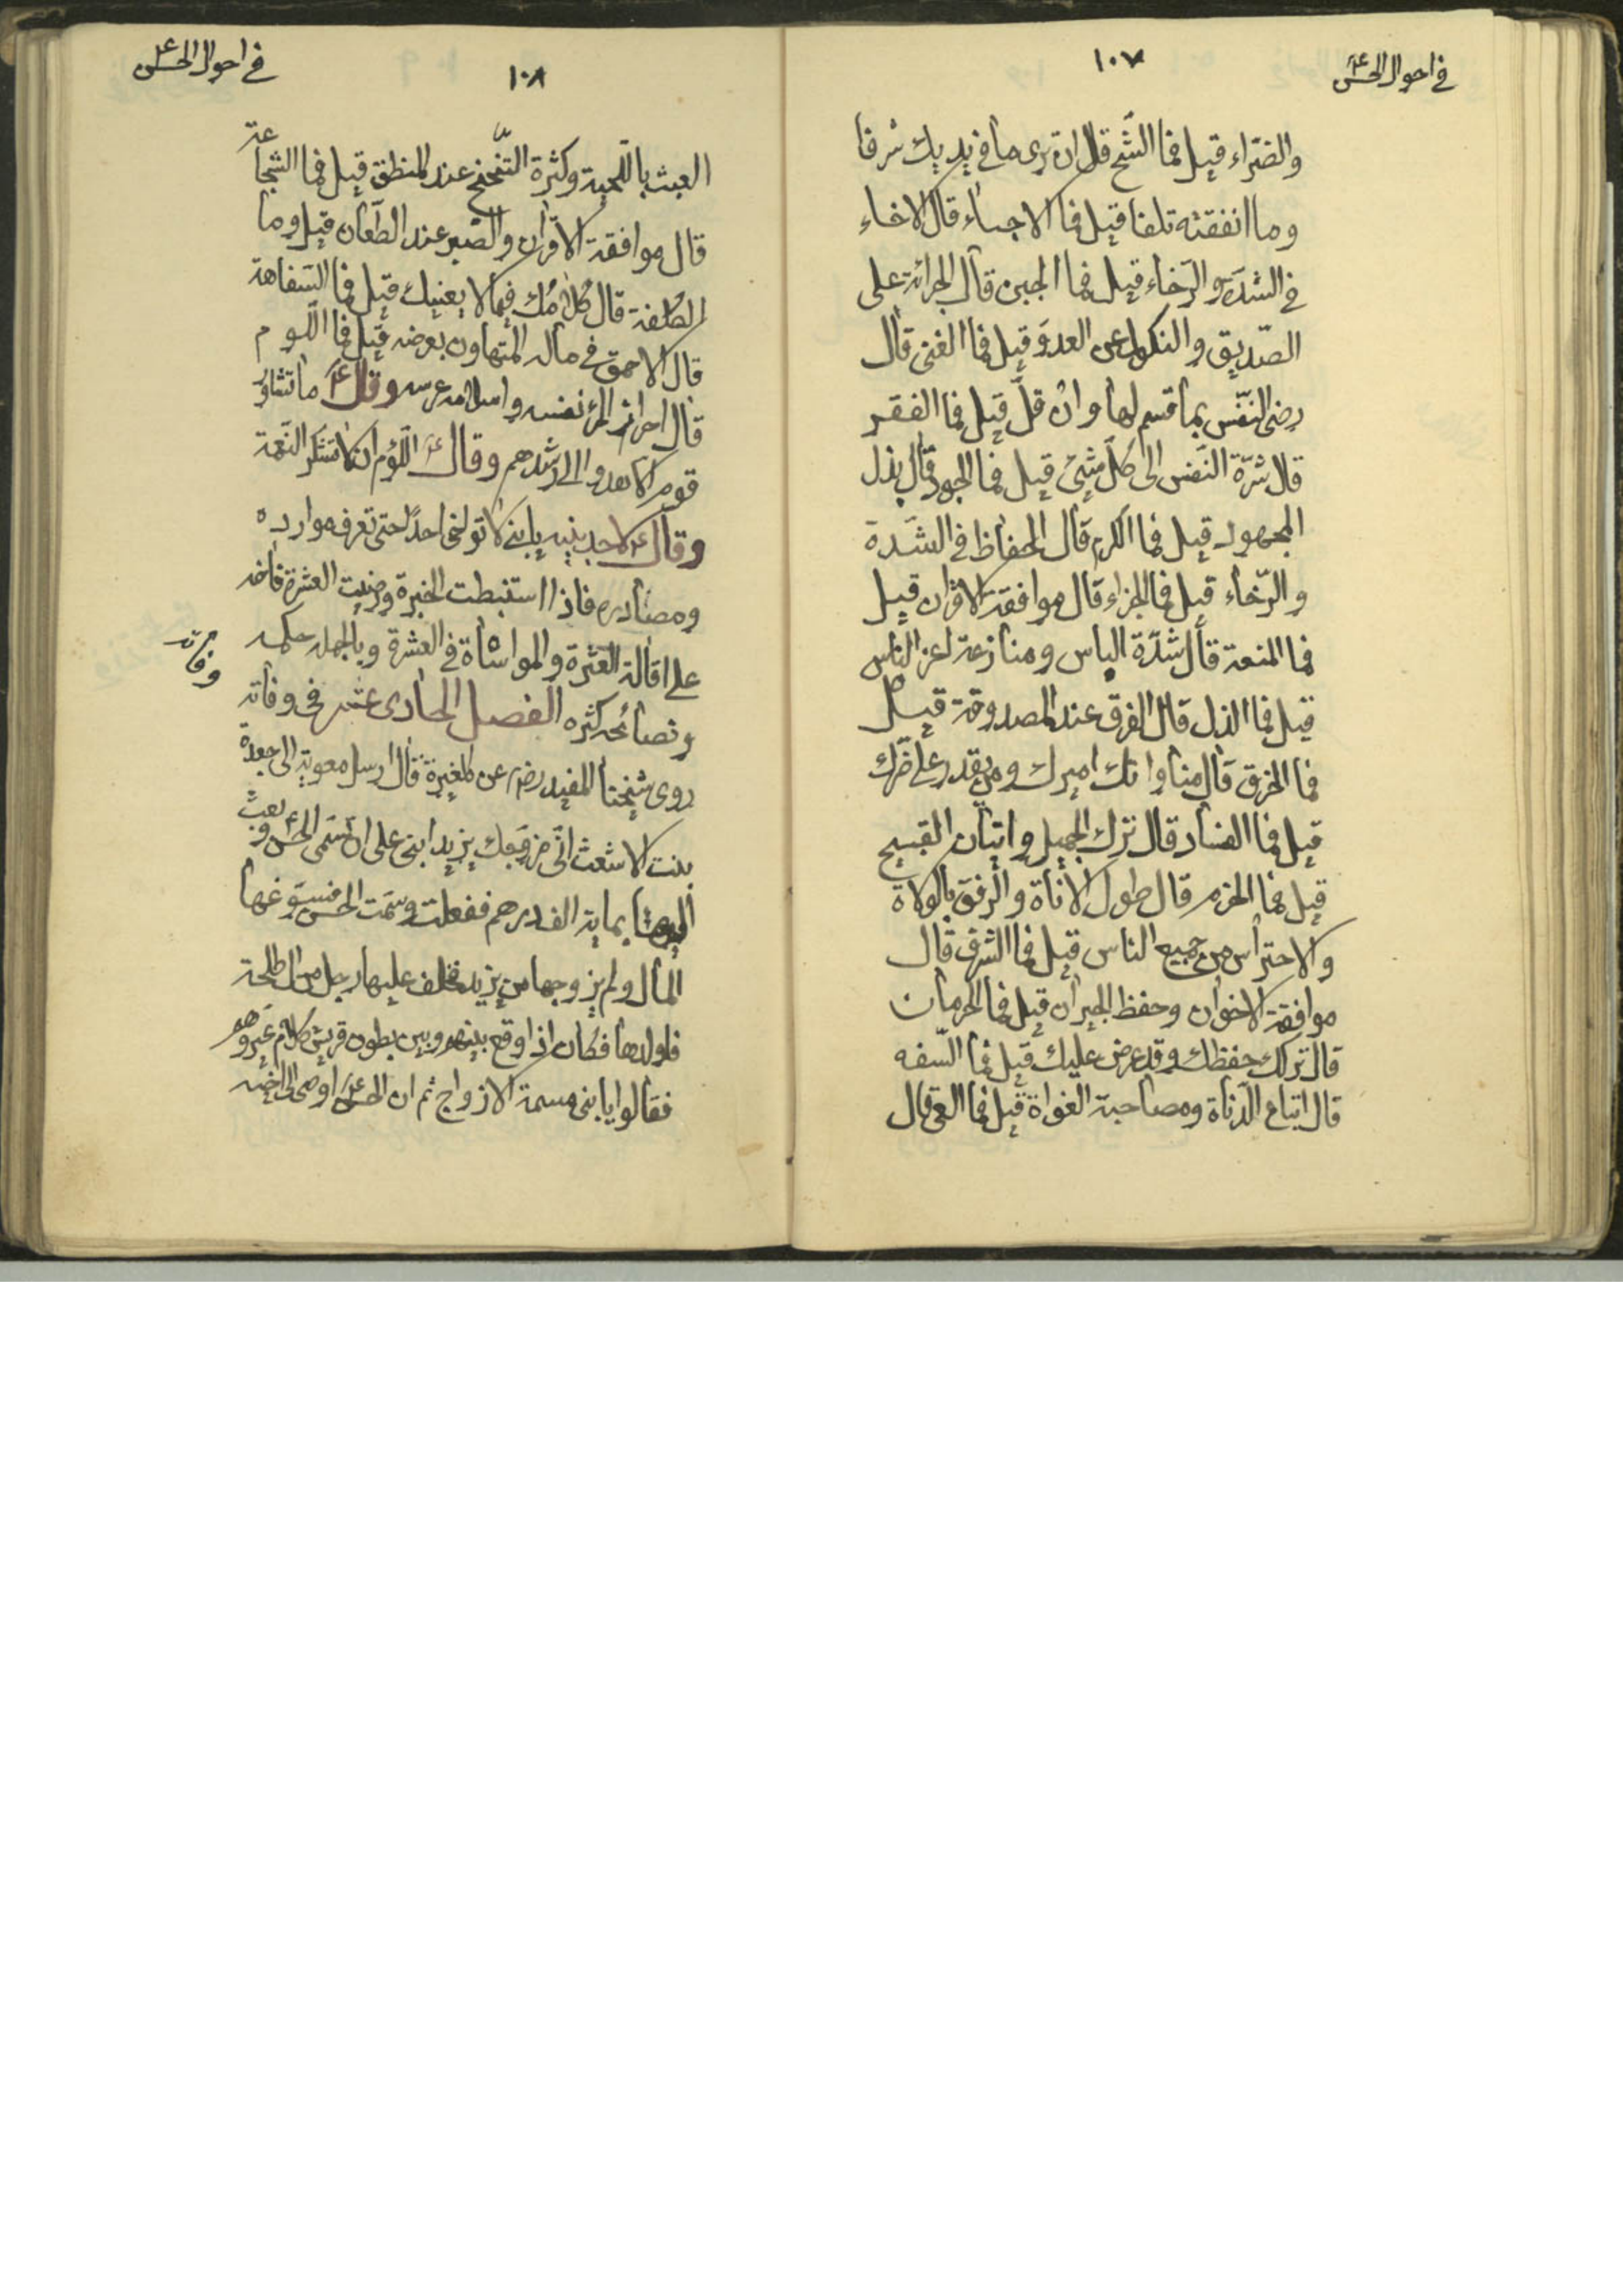 في احوال الحسن ع
١٠٧
والضرّاء قيل فما الشّح قال ان ترى ما في يديك شرفا
وما انفقته تلفا قيل فما الاخاء قال الاخاء
في الشدّة والرّخاء قيل فما الجبن قال الجرائة على
الصّديق والنكول عن العدوّ قيل فما الغنى قال
رضى النّفس بما قسم لها وان قلّ قيل فما الفقر
قال شرّة النّفس الى كلّ شئ قيل فما الجود قال بذل
المجهود قيل فما الكرم قال الحفاظ في الشّدة
والرّخاء قيل فما الجراء قال موافقة الاقران قيل
فما المنعة قال شدّة الباس ومنازعة اعز الناس
قيل فما الذل قال الفرق عند المصدوقة قيل
فما الخرق قال مناواتك اميرك ومن يقدر على ضرك
قيل فما السناد قال ترك الجميل واتيان القبيح
قيل فما الحزم قال طول الاناة والرفق بالولاة
والاحتراس من جميع الناس قيل فما الشرف قال
موافقة الاخوان وحفظ الجيران قيل فما الحرمان
قال تركك حفظك وقد عرض عليك قيل فما السّفه
قال اتباع الدّناة ومصاحبة الغواة قيل فما العى قال
في احوال الحسن ع
١٠٨
العبث باللّحية وكثرة التّنحنح عند المنطق قيل فما الشجاعة
قال موافقة الاقران والصّبر عند الطّعان قيل وما
الكلفة قال كلامك فيما لا يعنيك قيل فما السّفاهة
قال الاحمق في ماله المتهاون بعرضه قيل فما اللّوم
قال احراز المرء نفسه واسلامه عرسه وقال ع ما تشاور
قوم الا هدوا الى رشدهم وقال ع اللّؤم ان لا تشكر النّعمة
وقال ع لاحد بنيه يا بني لا تواخى احدًا حتى تعرف موارده
ومصادره فاذا استنبطت الخبرة ورضيت العشرة فاخه
على اقالة العثرة والمواساة في العشرة وبالجملة حكمه
ونصائحه كثيره الفصل الحادى عشر في وفاته
وفاته
روى شيخنا المفيد رضه عن المغيرة قال ارسل معوية الى جعدة
بنت الاشعث انّى مزوّجك يزيد ابنى على ان تسمى الحسن ع وبعث
اليها بماية الف درهم ففعلت وسمّت الحسن فسوّغها
المال ولم يزوجها من يزيد فخلف عليها رجل من ال طلحة
فاولدها فكان اذا وقع بينهم وبين بطون قريش كلام عيّروهم
فقالوا يا بنى مسمة الازواج ثم ان الحسن ع اوصى الى اخيه